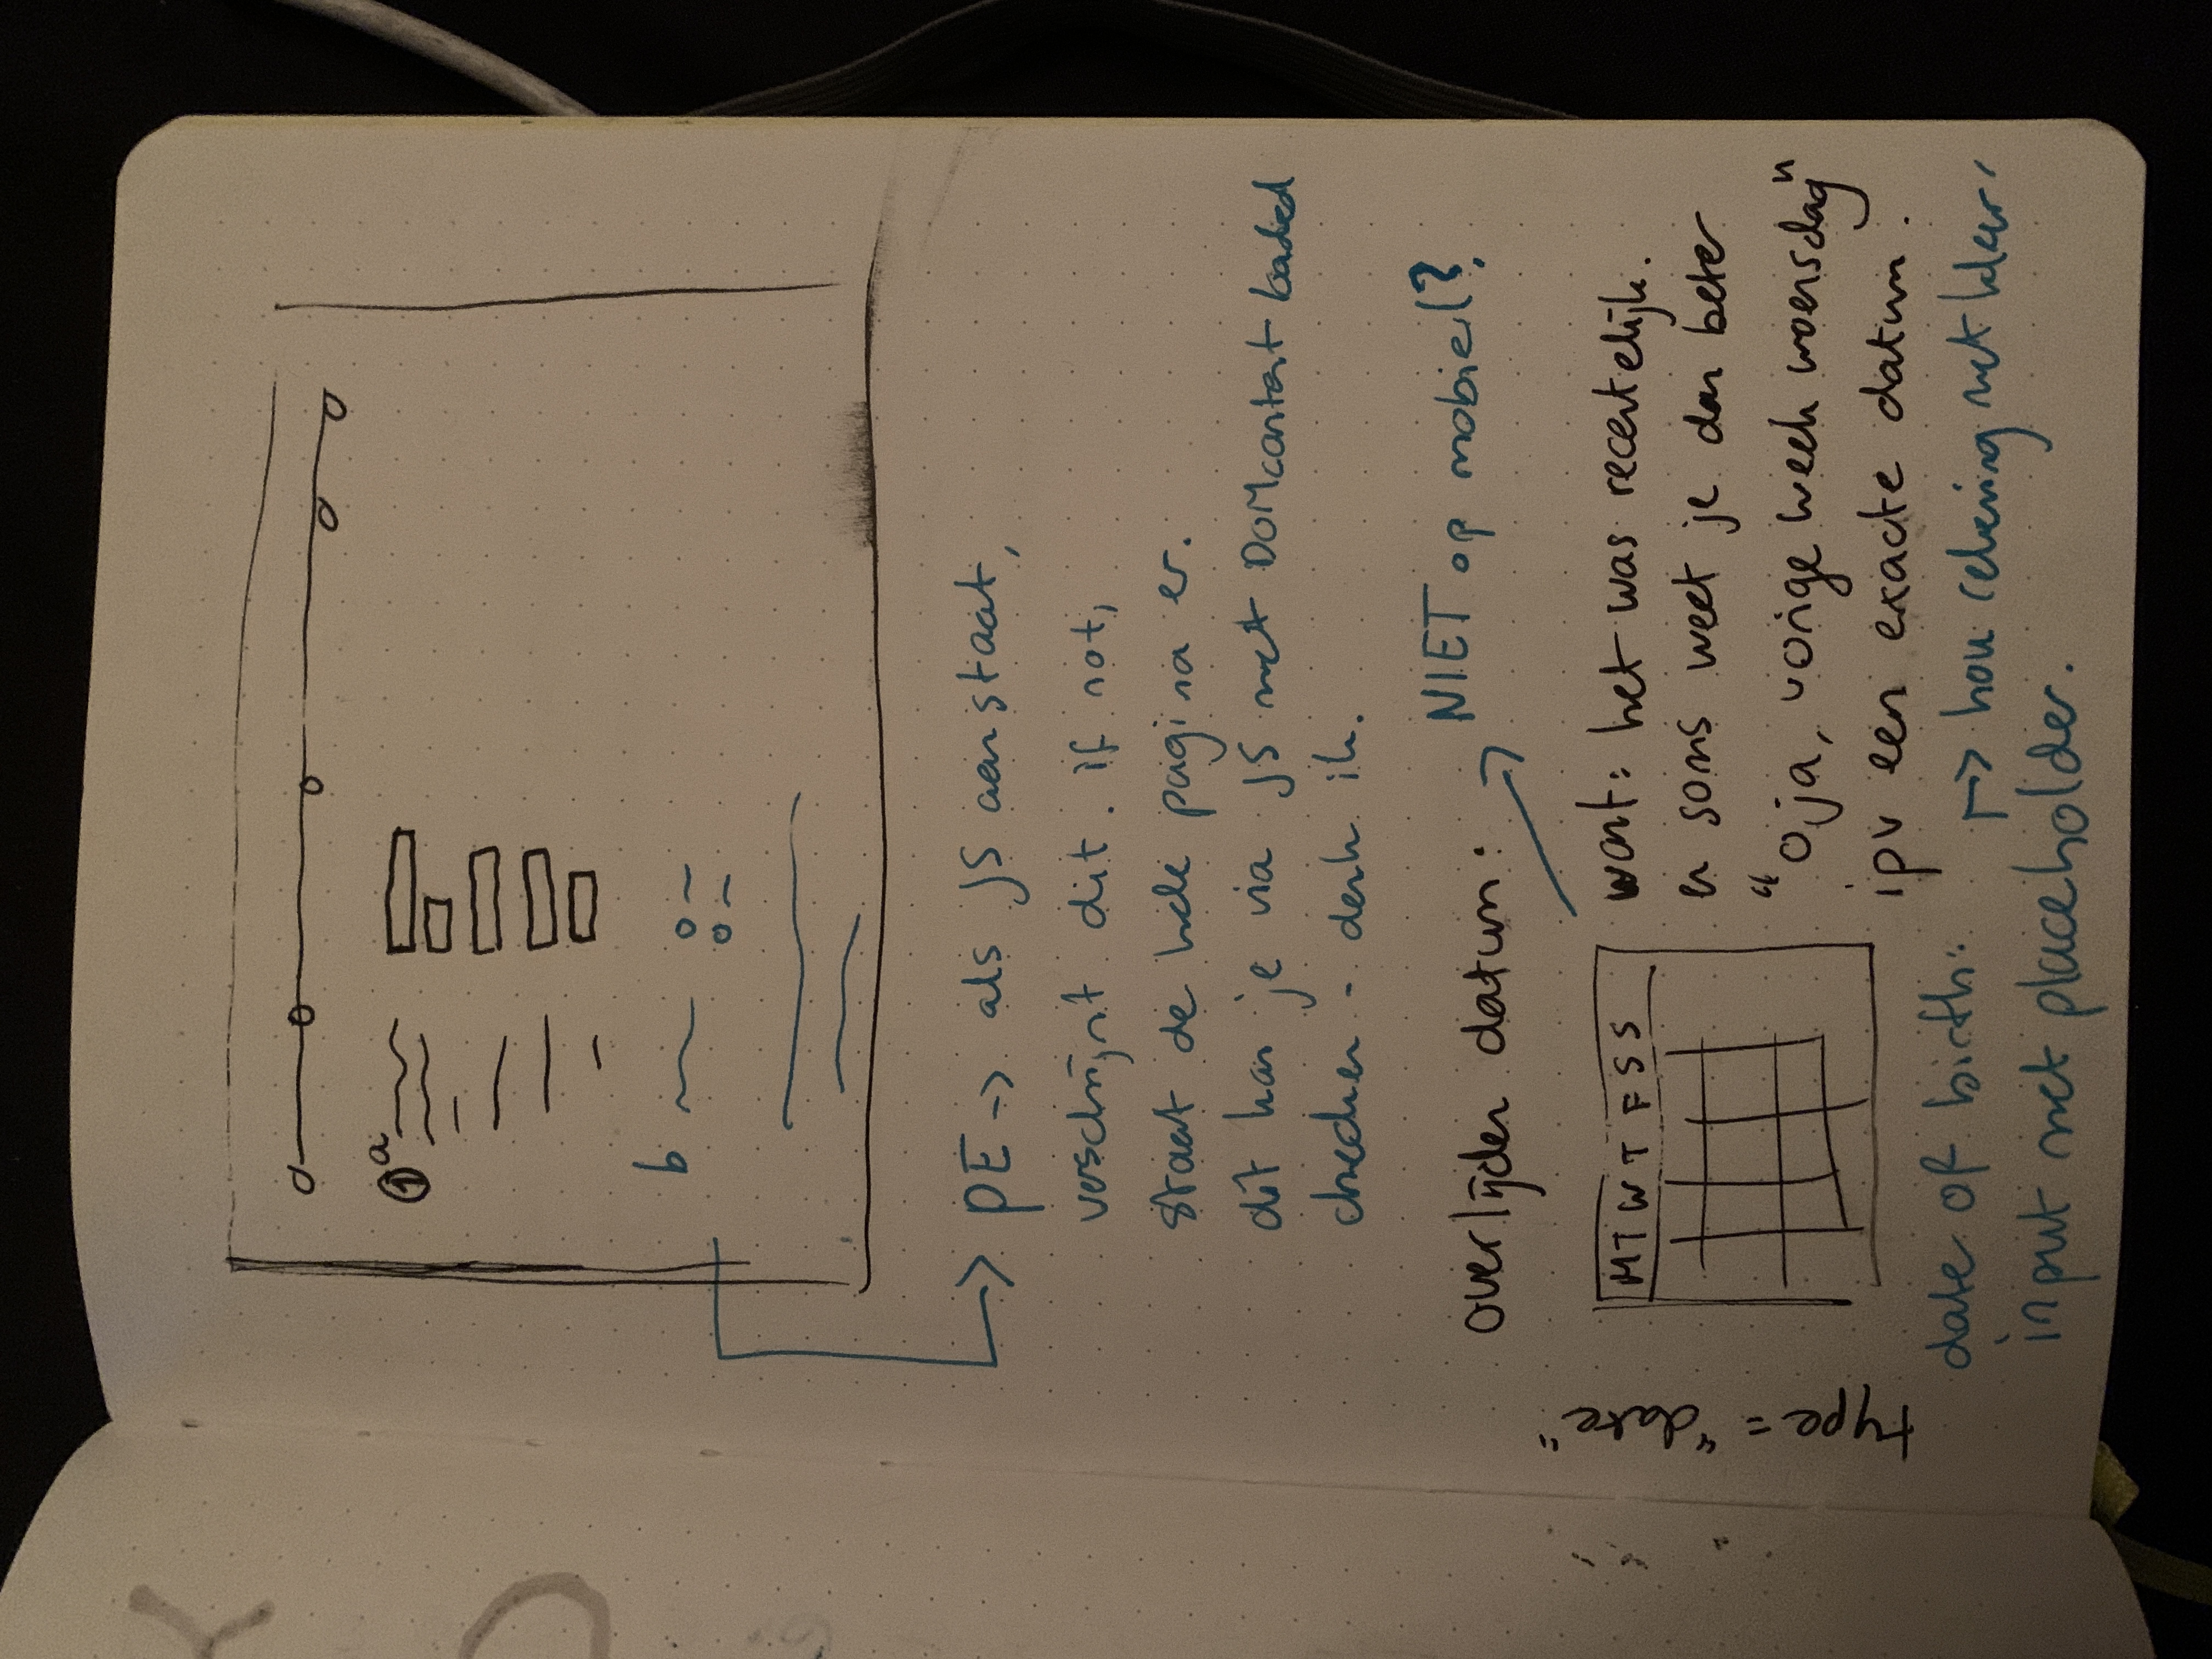 ① a
b
PE -> als JS aanstaat,
verschijnt dit. if not,
staat de hele pagina er.
dit kan je via JS met DOMcontent loaded
checken - denk ik.
NIET op mobiel?
overlijden datum:
type = "date"
M T W T F S S
want: het was recentelijk.
en soms weet je dan beter
"O, ja, vorige week woensdag"
ipv een exacte datum.
date of birth:
-> hou rekening met kleur
input met placeholder.